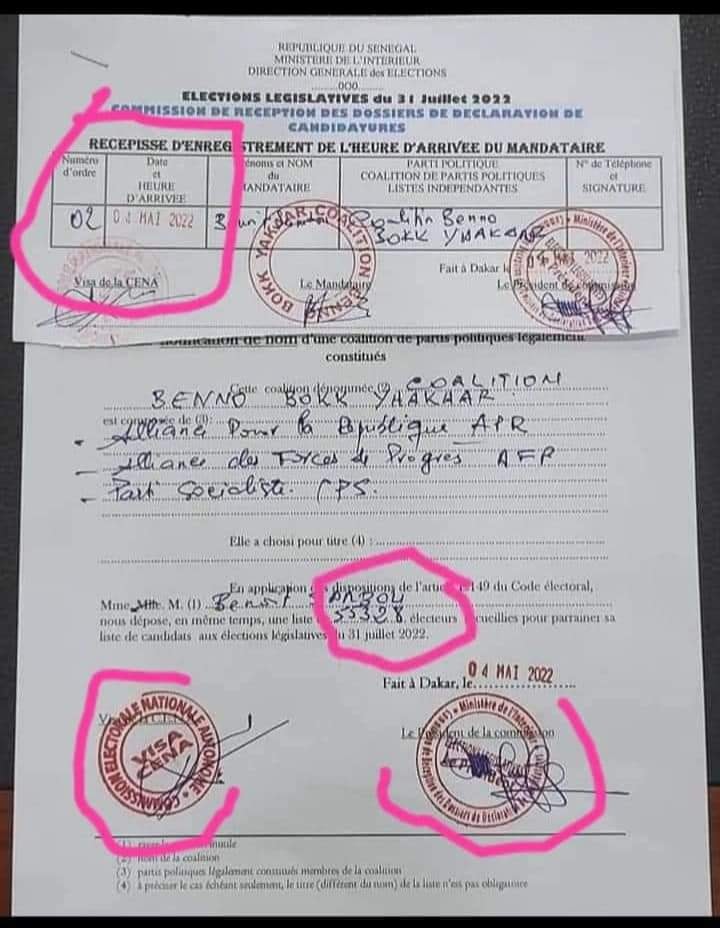 REPUBLIQUE DU SENEGAL
MINISTERE DE L'INTERIEUR
DIRECTION GENERALE des ELECTIONS
........000........
ELECTIONS LEGISLATIVES du 31 Juillet 2022
COMMISSION DE RECEPTION DES DOSSIERS DE DECLARATION DE
CANDIDATURES
RECEPISSE D'ENREGISTREMENT DE L'HEURE D'ARRIVEE DU MANDATAIRE
Numéro d'ordre
Date et HEURE D'ARRIVEE
Prénoms et NOM du MANDATAIRE
PARTI POLITIQUE COALITION DE PARTIS POLITIQUES LISTES INDEPENDANTES
N° de Téléphone et SIGNATURE
02
04 MAI 2022
Coalition Benno BOKK YAKAAR
Fait à Dakar le
Visa de la CENA
Le Mandataire
Le Président de la Commission
COALITION BENNO BOKK YAKAAR
Ministère de l'Intérieur
de nom d'une coalition de partis politiques légalement
constitués
Cette coalition dénommée (2) COALITION
BENNO BOKK YHAKHAR
est composée de (3):
- Alliance Pour la République APR
- Alliance des Forces de Progrès AFP
- Parti Socialiste (PS.
Elle a choisi pour titre (4) :
En application des dispositions de l'article L.149 du Code électoral,
Mme Mlle. M. (1)
nous dépose, en même temps, une liste 55328 électeurs recueillies pour parrainer sa
liste de candidats aux élections législatives du 31 juillet 2022.
Fait à Dakar, le 04 MAI 2022
COMMISSION ELECTORALE NATIONALE AUTONOME
VISA CENA
Le Président de la commission
Ministère de l'Intérieur
(2) nom de la coalition
(3) partis politiques légalement constitués membres de la coalition
(4) à préciser le cas échéant seulement, le titre (différent du nom) de la liste n'est pas obligatoire